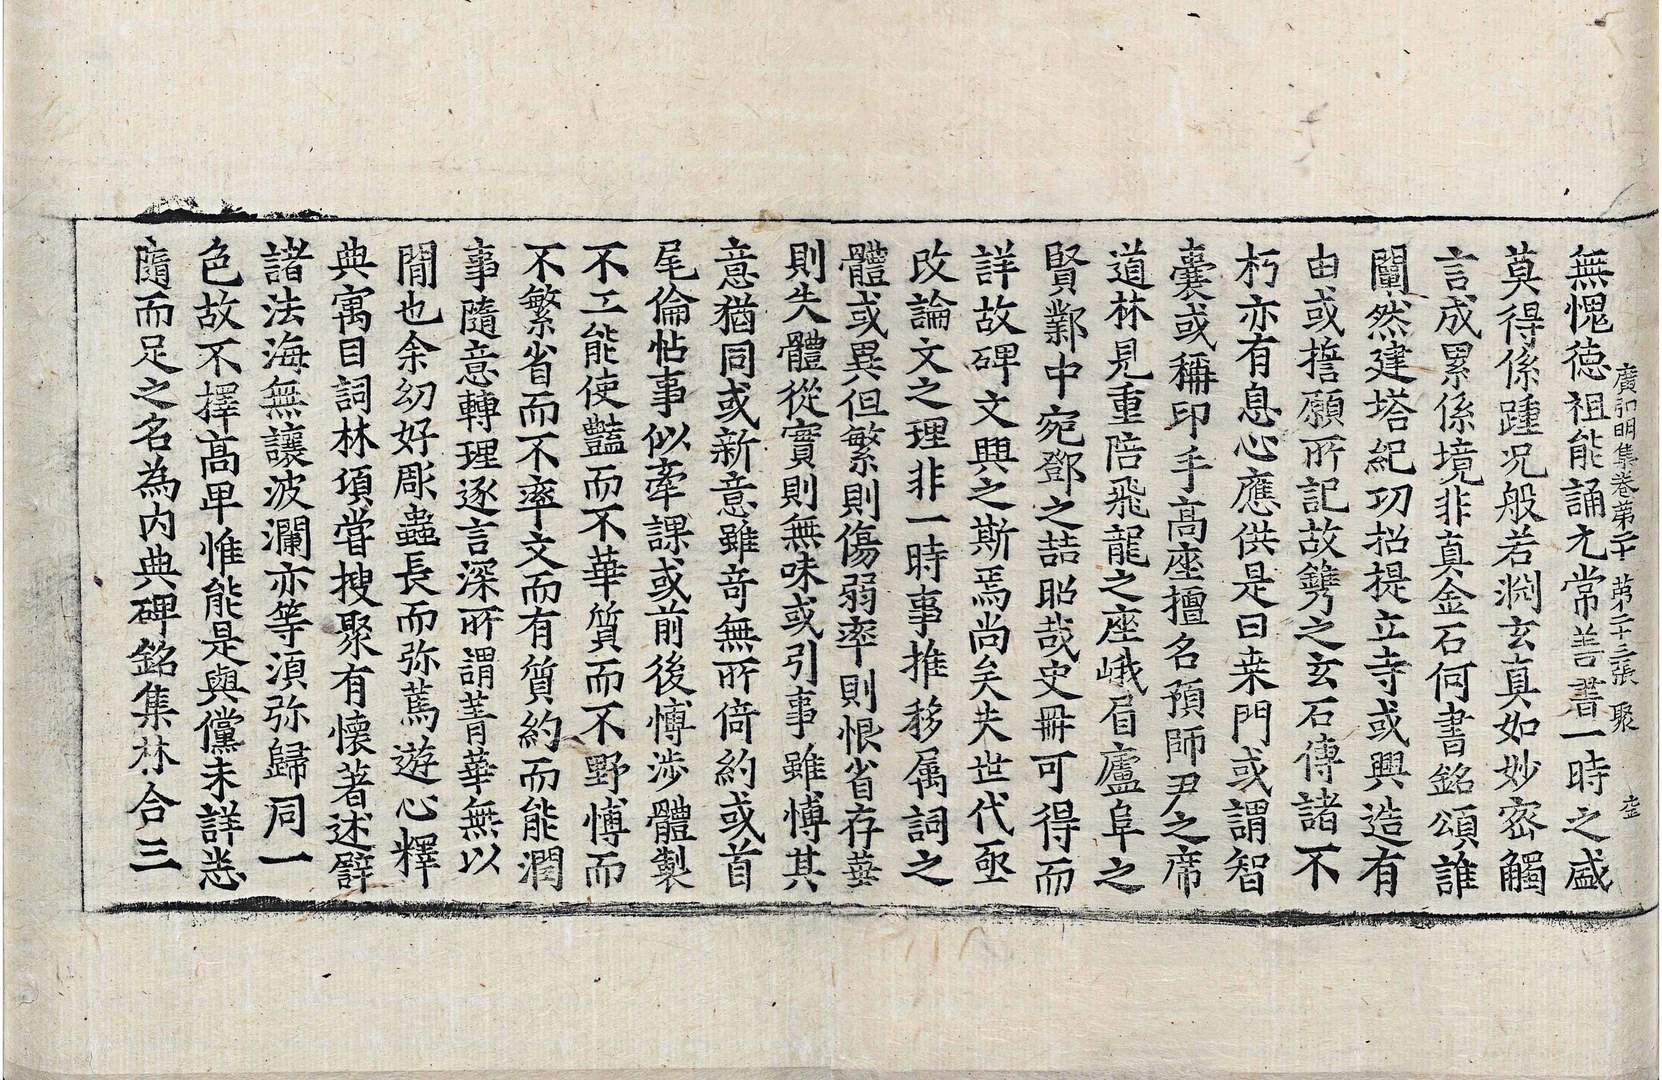 廣弘明集卷第二十 第二十三張 聚
無愧徳祖能誦尤常善書一時之盛
莫得係踵況般若渊玄真如妙密觸
言成累係境非真金石何書銘頌誰
闡然建塔紀功招提立寺或興造有
由或誓願所記故鐫之玄石傳諸不
朽亦有息心應供是曰桒門或謂智
囊或稱印手高座擅名預師尹之席
道林見重陪飛龍之座峨眉廬阜之
賢鄴中宛鄧之喆昭哉史冊可得而
詳故碑文文興之斯焉尚矣夫世代亟
改論文之理非一時事推移属詞之
體或異但繁則傷弱率則恨省存華
則失體從實則無味或引事雖博其
意猶同或新意雖竒無所倚約或首
尾倫帖事似牽課或前後博涉體製
不工能使豔而不華質而不野博而
不繁省而不率文而有質約而能潤
事隨意轉理逐言深所謂菁華無以
間也余幼好彫蟲長而弥篤遊心釋
典寓目詞林頃嘗搜聚有懷著述譬
諸法海無讓波瀾亦等湏弥歸同一
色故不擇高卑惟能是與儻未詳悉
隨而足之名為内典碑銘集林合三